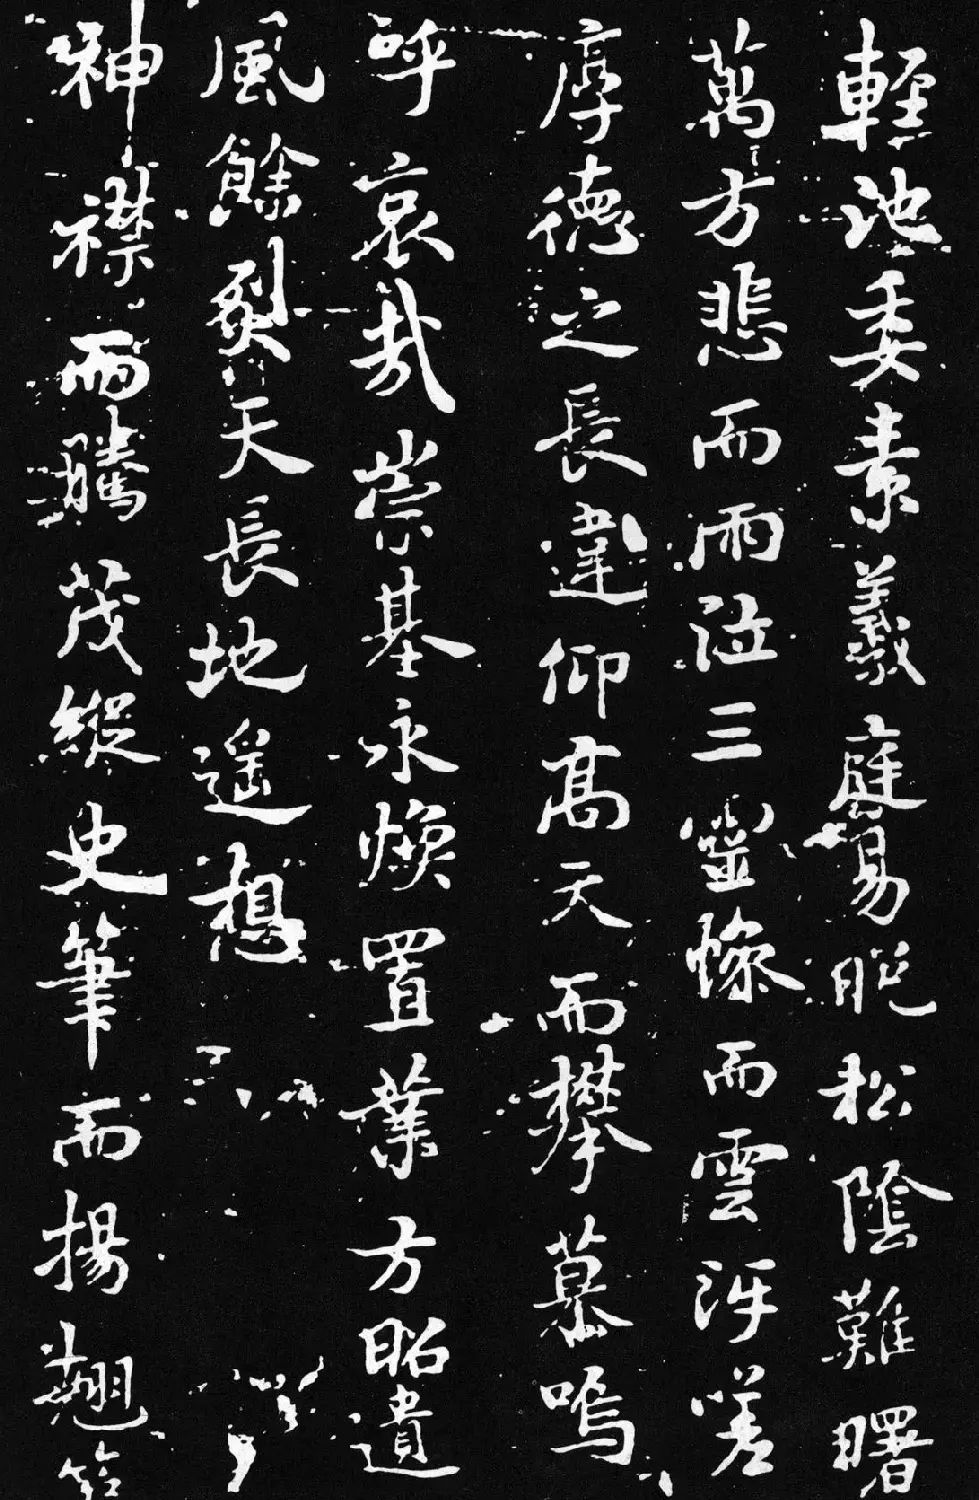 輕池委素羲庭易晚松陰難曙
萬方悲而雨泣三靈慘而雲沴嗟
厚德之長違仰高天而攀慕嗚
呼哀哉崇基永煥置業方昭遺
風餘烈天長地遙想
神襟而騰茂縱史筆而揚翹